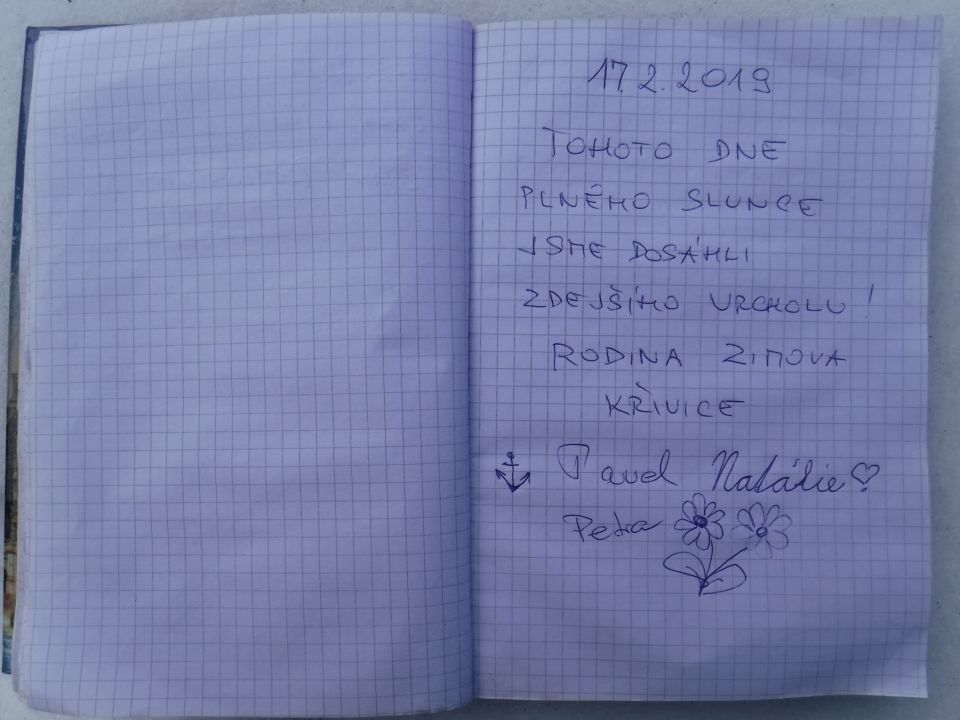 17.2.2019
TOHOTO DNE
PLNÉHO SLUNCE
JSME DOSÁHLI
ZDEJŠÍHO VRCHOLU!
RODINA ZIMOVA
KŘIVICE
Pavel Natálie
Petra